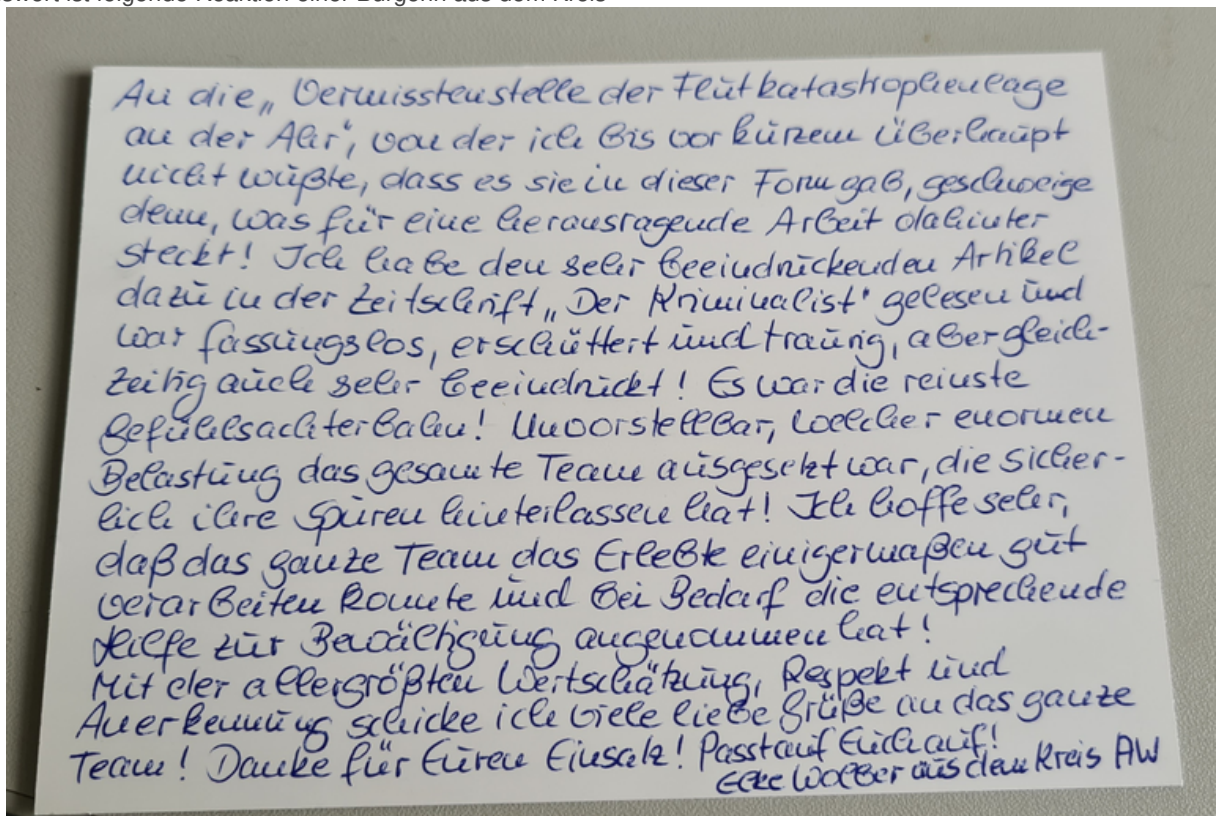 swert ist folgende Reaktion einer Bürgerin aus dem Kreis
An die „Vermisstenstelle der Flutkatastrophenlage
an der Ahr“, von der ich bis vor kurzem überhaupt
nicht wußte, dass es sie in dieser Form gab, geschweige
denn, was für eine herausragende Arbeit dahinter
steckt! Ich habe den sehr beeindruckenden Artikel
dazu in der Zeitschrift „Der Kriminalist“ gelesen und
war fassungslos, erschüttert und traurig, aber gleich-
zeitig auch sehr beeindruckt! Es war die reinste
Gefühlsachterbahn! Unvorstellbar, welcher enormen
Belastung das gesamte Team ausgesetzt war, die sicher-
lich ihre Spuren hinterlassen hat! Ich hoffe sehr,
daß das ganze Team das Erlebte einigermaßen gut
verarbeiten konnte und bei Bedarf die entsprechende
Hilfe zur Bewältigung angenommen hat!
Mit der allergrößten Wertschätzung, Respekt und
Anerkennung schicke ich viele liebe Grüße an das ganze
Team! Danke für Euren Einsatz! Passt auf Euch auf!
aus dem Kreis AW